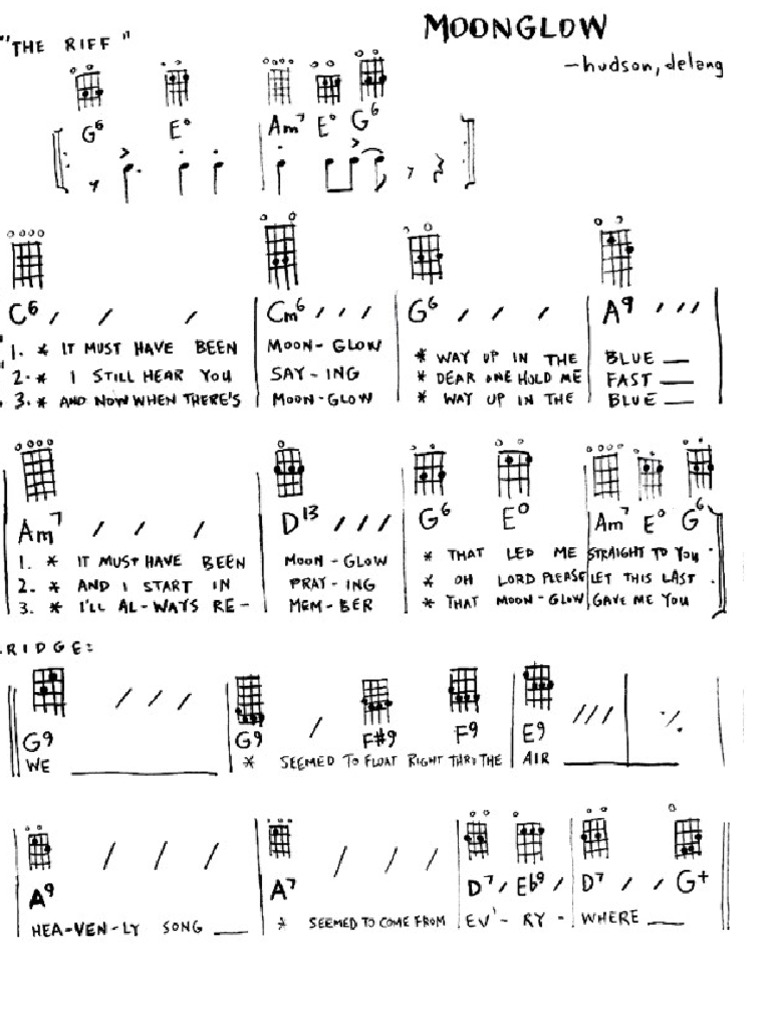 MOONGLOW
"THE RIFF"
—hudson, delang
G6 E° Am7 E° G6
C6 / / / Cm6 / / / G6 / / / A9 / / /
1. * IT MUST HAVE BEEN MOON-GLOW * WAY UP IN THE BLUE __
2. * I STILL HEAR YOU SAY-ING * DEAR ONE HOLD ME FAST __
3. * AND NOW WHEN THERE'S MOON-GLOW * WAY UP IN THE BLUE __
Am7 / / / D13 / / / G6 E° Am7 E° G6
1. * IT MUST HAVE BEEN MOON-GLOW * THAT LED ME STRAIGHT TO YOU
2. * AND I START IN PRAY-ING * OH LORD PLEASE LET THIS LAST
3. * I'LL AL-WAYS RE- MEM-BER * THAT MOON-GLOW GAVE ME YOU
RIDGE:
G9 / / / G9 / F#9 F9 E9 / / / %
WE ____ * SEEMED TO FLOAT RIGHT THRU THE AIR ____
A9 / / / A7 / / / D7 / Eb9 / D7 / / G+
HEA-VEN-LY SONG __ * SEEMED TO COME FROM EV'-RY- WHERE __